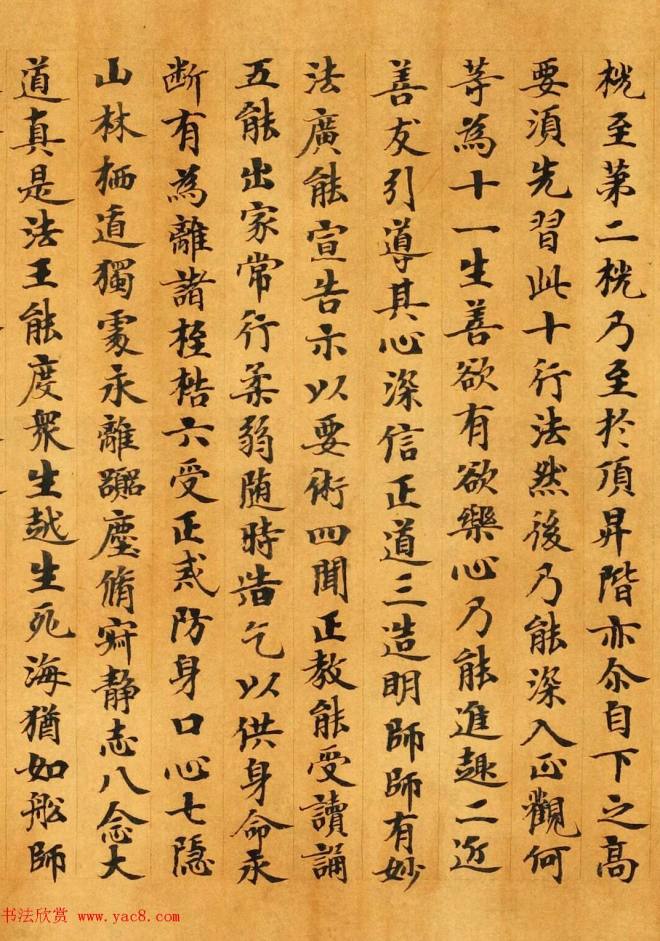 桄至第二桄乃至於頂昇階亦尒自下之高
要須先習此十行法然後乃能深入正觀何
等為十一生善欲有欲樂心乃能進趣二近
善友引導其心深信正道三造明師師有妙
法廣能宣告示以要術四聞正教能受讀誦
五能出家常行柔弱随時告乞以供身命永
断有為離諸桎梏六受正戒防身口心七隱
山林栖遁獨處永離囂塵脩寂静志八念大
道真是法王能度衆生越生死海猶如舩師
书法欣赏 www.yac8.com